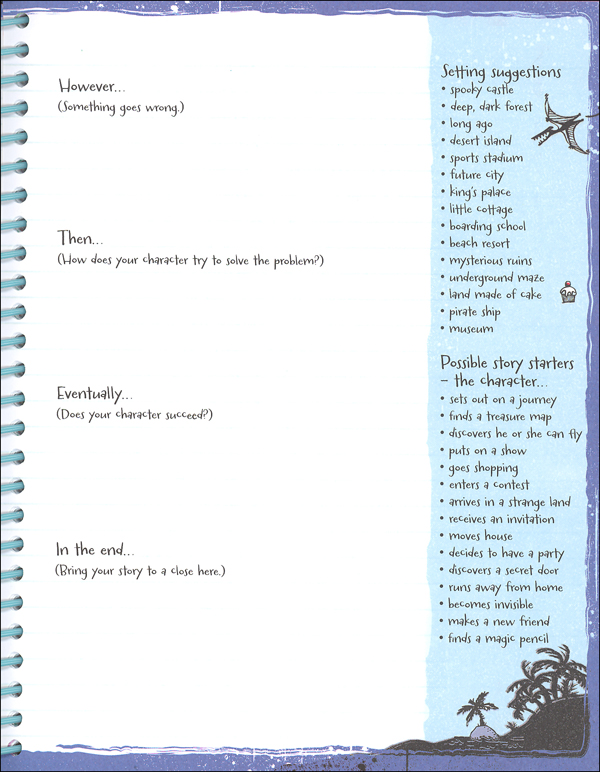 However...
(Something goes wrong.)
Then...
(How does your character try to solve the problem?)
Eventually...
(Does your character succeed?)
In the end...
(Bring your story to a close here.)
Setting suggestions
• spooky castle
• deep, dark forest
• long ago
• desert island
• sports stadium
• future city
• king's palace
• little cottage
• boarding school
• beach resort
• mysterious ruins
• underground maze
• land made of cake
• pirate ship
• museum
Possible story starters
– the character...
• sets out on a journey
• finds a treasure map
• discovers he or she can fly
• puts on a show
• goes shopping
• enters a contest
• arrives in a strange land
• receives an invitation
• moves house
• decides to have a party
• discovers a secret door
• runs away from home
• becomes invisible
• makes a new friend
• finds a magic pencil